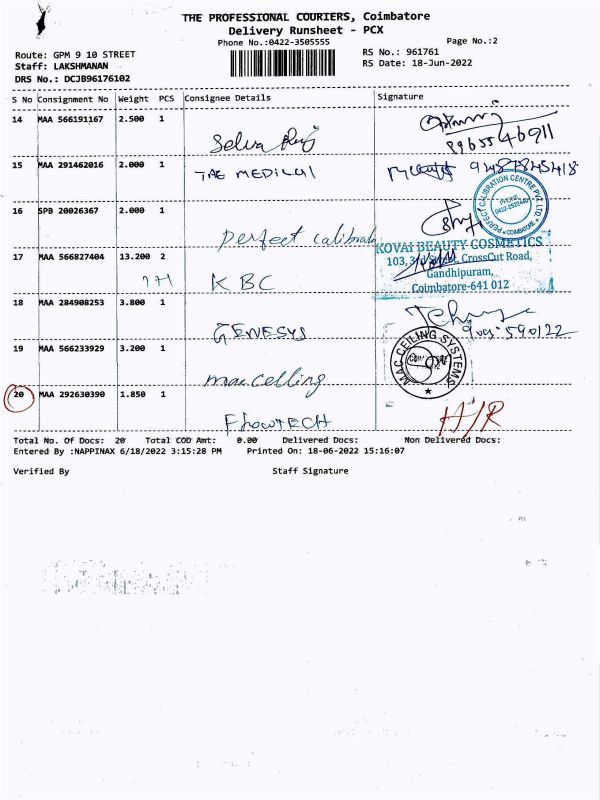 THE PROFESSIONAL COURIERS, Coimbatore
Delivery Runsheet - PCX
Phone No.:0422-3505555
Page No.:2
Route: GPM 9 10 STREET
RS No.: 961761
Staff: LAKSHMANAN
RS Date: 18-Jun-2022
DRS No.: DCJB96176102
S No Consignment No Weight PCS Consignee Details Signature
14 MAA 566191167 2.500 1
Selva
15 MAA 291462016 2.000 1
MEDICAL
16 SPB 20026367 2.000 1
PERFECT CALIBRATION CENTRE PVT. LTD.
PHONE
COIMBATORE
Perfect calibration
17 MAA 566827404 13.200 2
KBC
KOVAI BEAUTY COSMETICS
103, 3rd Street, CrossCut Road,
Gandhipuram,
Coimbatore-641 012
18 MAA 284908253 3.800 1
GENESYS
19 MAA 566233929 3.200 1
mac ceiling
MAC CEILING SYSTEMS
20 MAA 292630390 1.850 1
FlowTECH
Total No. Of Docs: 20 Total COD Amt: 0.00 Delivered Docs: Non Delivered Docs:
Entered By :NAPPINAX 6/18/2022 3:15:28 PM Printed On: 18-06-2022 15:16:07
Verified By Staff Signature